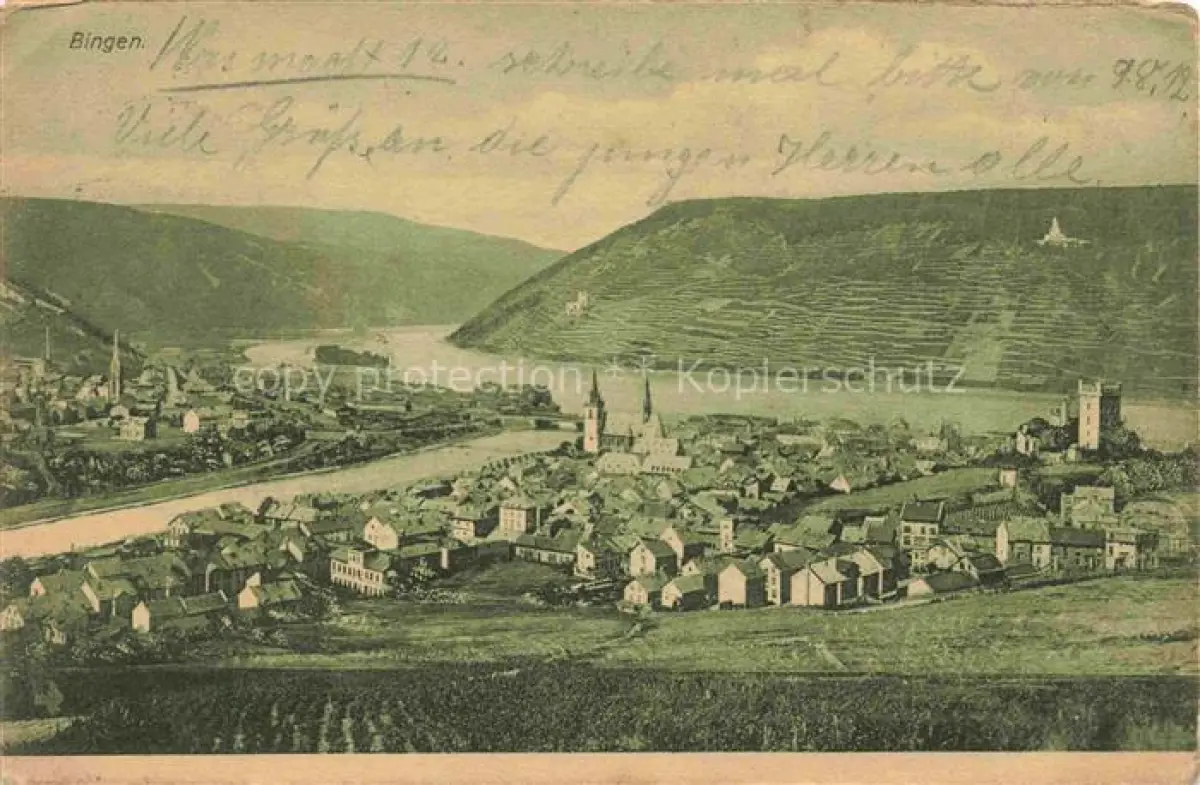 Bingen.
Was macht 12. schreibe mal bitte von
Viele Grüße an die jungen Herren alle
copy protection * * * Kopierschutz